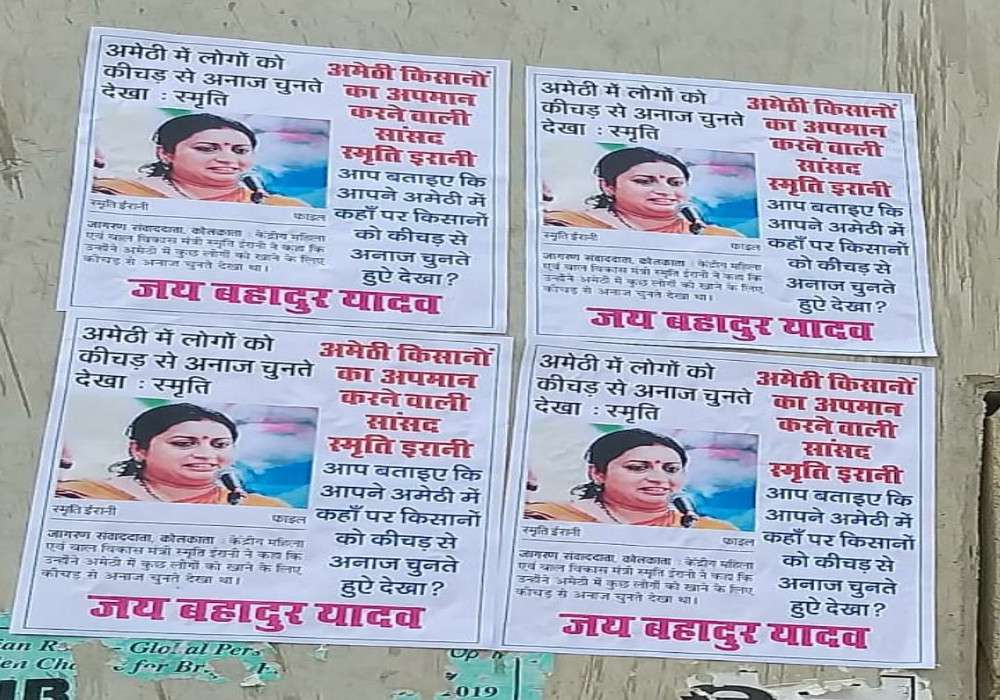 अमेठी में लोगों को
कीचड़ से अनाज चुनते
देखा : स्मृति
स्मृति ईरानी
फाइल
जागरण संवाददाता, कोलकाता : केंद्रीय महिला
एवं बाल विकास मंत्री स्मृति ईरानी ने कहा कि
उन्होंने अमेठी में कुछ लोगों को खाने के लिए
कीचड़ से अनाज चुनते देखा था।
अमेठी किसानों
का अपमान
करने वाली
सांसद
स्मृति इरानी
आप बताइए कि
आपने अमेठी में
कहाँ पर किसानों
को कीचड़ से
अनाज चुनते
हुऐ देखा?
जय बहादुर यादव
अमेठी में लोगों को
कीचड़ से अनाज चुनते
देखा : स्मृति
स्मृति ईरानी
फाइल
जागरण संवाददाता, कोलकाता : केंद्रीय महिला
एवं बाल विकास मंत्री स्मृति ईरानी ने कहा कि
उन्होंने अमेठी में कुछ लोगों को खाने के लिए
कीचड़ से अनाज चुनते देखा था।
अमेठी किसानों
का अपमान
करने वाली
सांसद
स्मृति इरानी
आप बताइए कि
आपने अमेठी में
कहाँ पर किसानों
को कीचड़ से
अनाज चुनते
हुऐ देखा?
जय बहादुर यादव
अमेठी में लोगों को
कीचड़ से अनाज चुनते
देखा : स्मृति
स्मृति ईरानी
फाइल
जागरण संवाददाता, कोलकाता : केंद्रीय महिला
एवं बाल विकास मंत्री स्मृति ईरानी ने कहा कि
उन्होंने अमेठी में कुछ लोगों को खाने के लिए
कीचड़ से अनाज चुनते देखा था।
अमेठी किसानों
का अपमान
करने वाली
सांसद
स्मृति इरानी
आप बताइए कि
आपने अमेठी में
कहाँ पर किसानों
को कीचड़ से
अनाज चुनते
हुऐ देखा?
जय बहादुर यादव
अमेठी में लोगों को
कीचड़ से अनाज चुनते
देखा : स्मृति
स्मृति ईरानी
फाइल
जागरण संवाददाता, कोलकाता : केंद्रीय महिला
एवं बाल विकास मंत्री स्मृति ईरानी ने कहा कि
उन्होंने अमेठी में कुछ लोगों को खाने के लिए
कीचड़ से अनाज चुनते देखा था।
अमेठी किसानों
का अपमान
करने वाली
सांसद
स्मृति इरानी
आप बताइए कि
आपने अमेठी में
कहाँ पर किसानों
को कीचड़ से
अनाज चुनते
हुऐ देखा?
जय बहादुर यादव
- Global Pers
for Br
2019